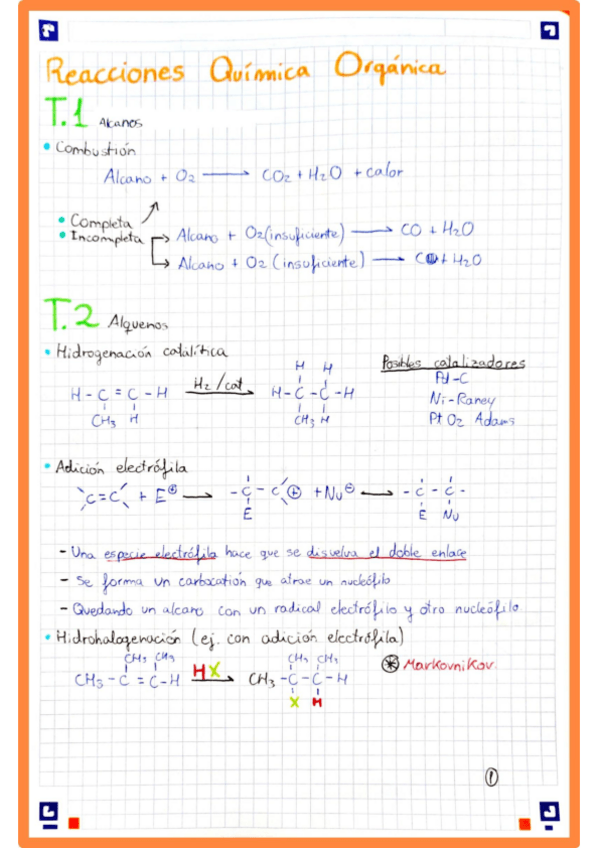 Reacciones Química Orgánica
T.1 Alcanos
• Combustión
Alcano + O2 → CO2 + H2O + calor
• Completa
• Incompleta → Alcano + O2 (insuficiente) → CO + H2O
→ Alcano + O2 (insuficiente) → C + H2O
T.2 Alquenos
• Hidrogenación catalítica
Posibles catalizadores
Pd-C
Ni-Raney
Pt O2 Adams
H - C = C - H H2/cat → H - C - C - H
CH3 H CH3 H
• Adición electrófila
C=C + E⊕ → - C - C⊕ + Nu⊖ → - C - C -
E E Nu
- Una especie electrófila hace que se disuelva el doble enlace
- Se forma un carbocatión que atrae un nucleófilo
- Quedando un alcano con un radical electrófilo y otro nucleófilo
• Hidrohalogenación (ej. con adición electrófila)
CH3 CH3 CH3 CH3
CH3 - C = C - H HX → CH3 - C - C - H
X H
* Markovnikov
1